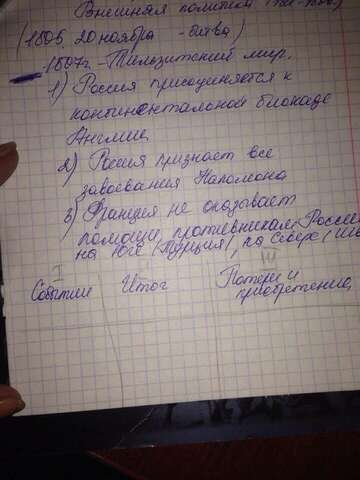 Внешняя политика
(1805, 20 ноября - битва)
- 1807г. - Тильзитский мир.
1) Россия присоединяется к
континентальной блокаде
Англии
2) Россия признает все
завоевания Наполеона
3) Франция не оказывает
помощи противникам России
на юге (Турция), на севере (
I
III
События Итог Потери и
приобретение